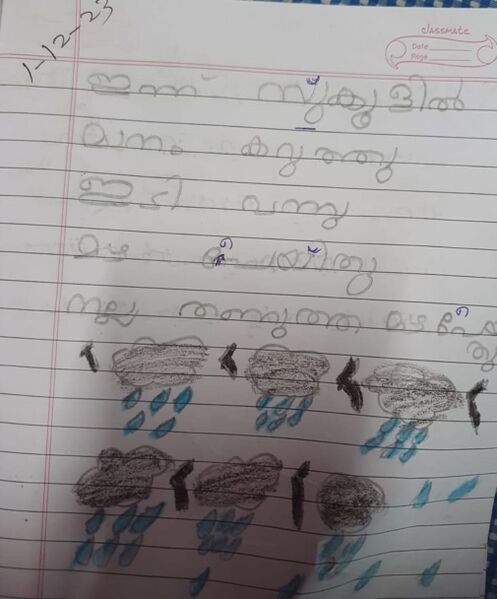 classmate
Date
Page
1-12-23
ഇന്ന് സ്കൂളിൽ
മാനം കറുത്തു
ഇടി വന്നു
മഴ പെയ്തു
നല്ല തണുത്ത മഴ പെയ്
തു